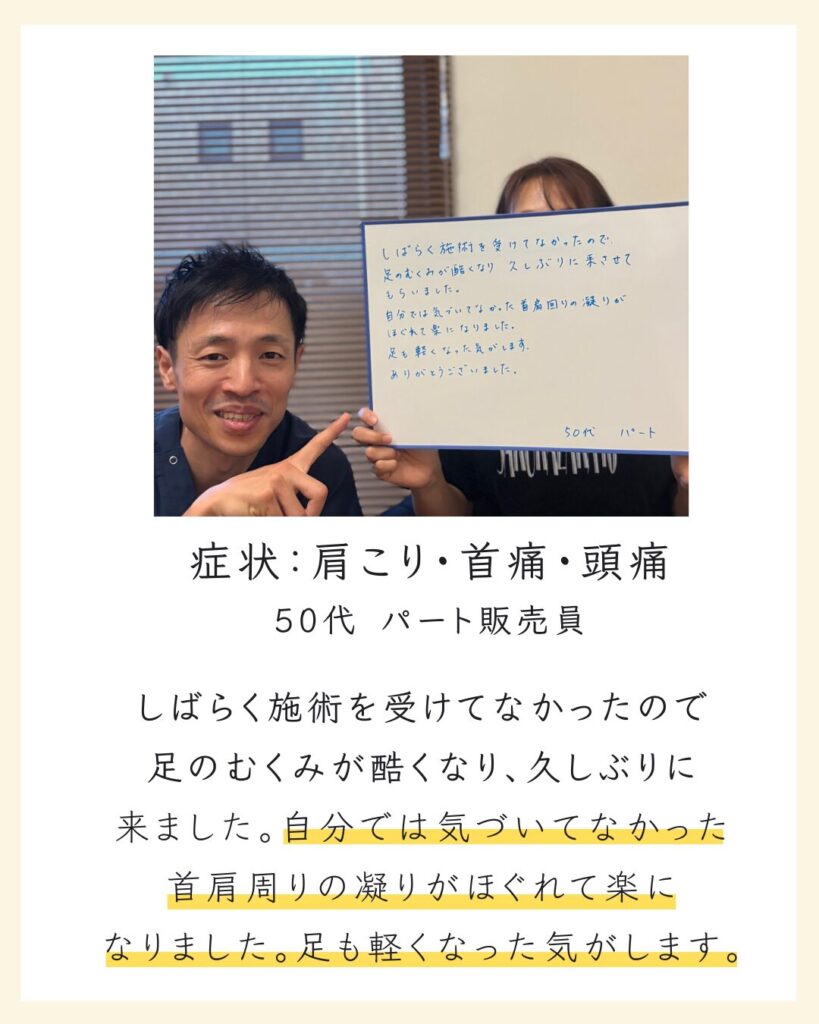 しばらく施術を受けてなかったので、
足のむくみが酷くなり 久しぶりに来させて
もらいました。
自分では気づいてなかった首肩回りの凝りが
ほぐれて楽になりました。
足も軽くなった気がします。
ありがとうございました。
50代 パート
症状:肩こり・首痛・頭痛
50代 パート販売員
しばらく施術を受けてなかったので
足のむくみが酷くなり、久しぶりに
来ました。自分では気づいてなかった
首肩周りの凝りがほぐれて楽に
なりました。足も軽くなった気がします。